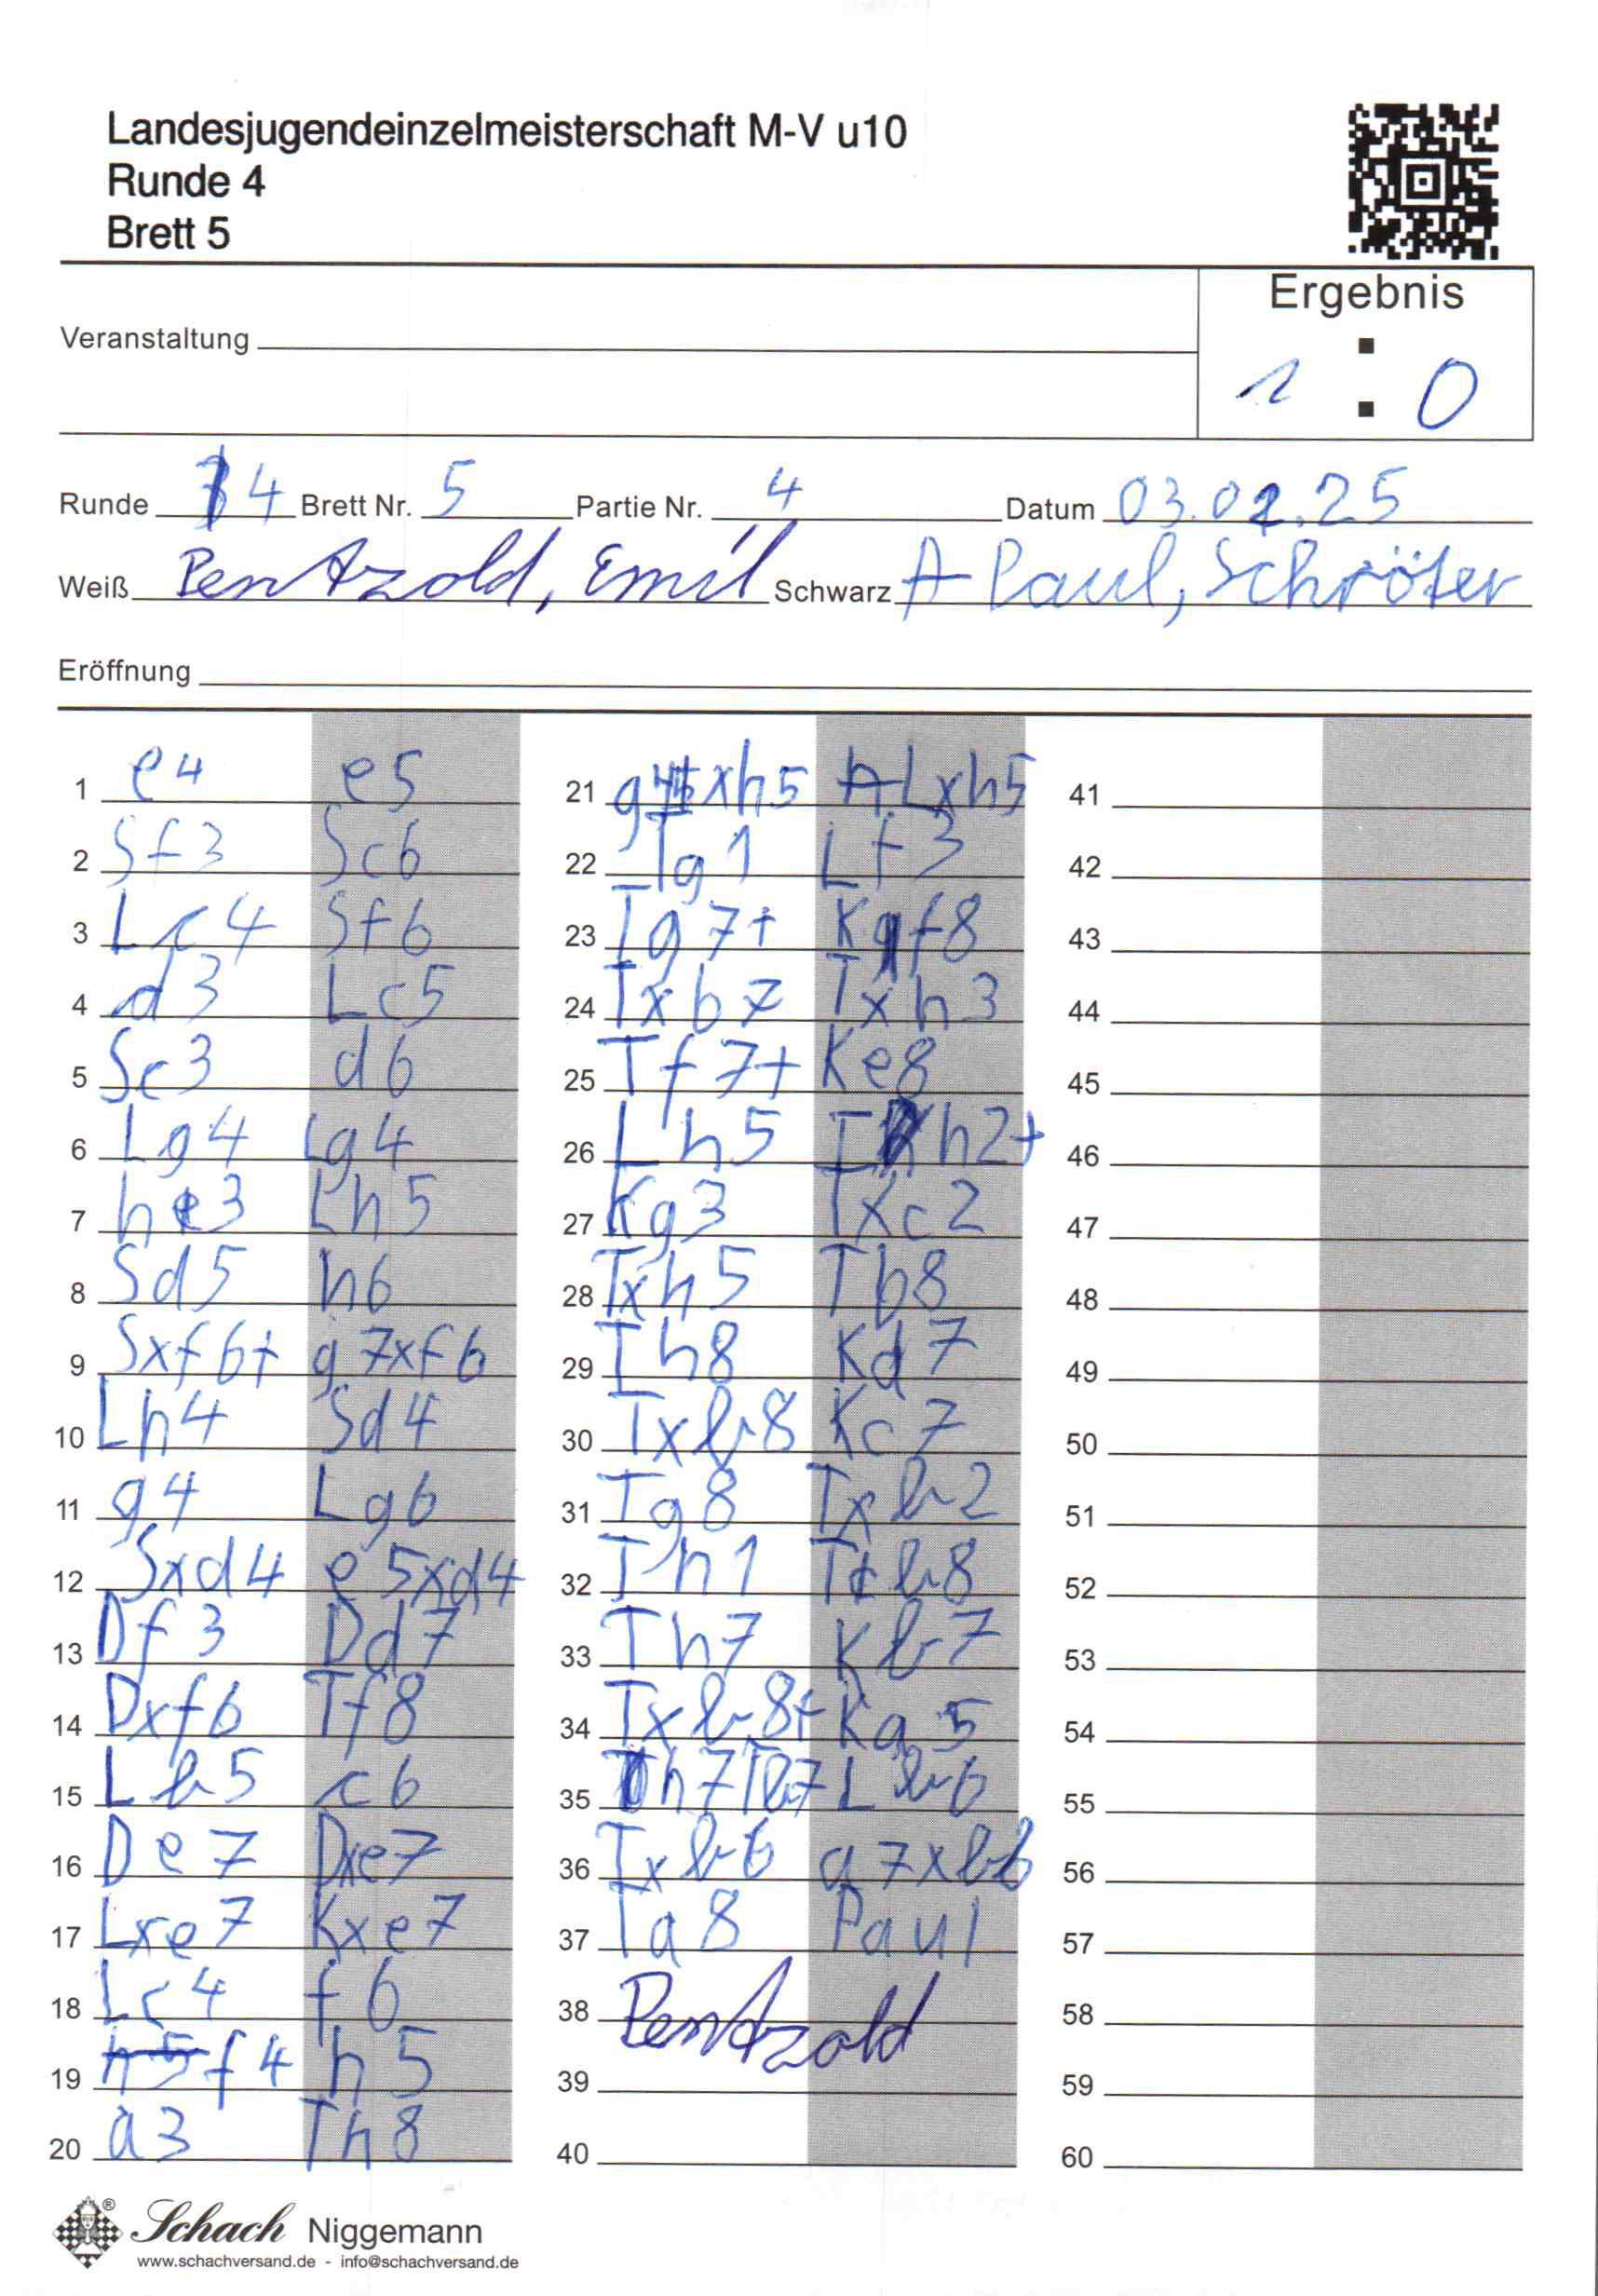 Landesjugendeinzelmeisterschaft M-V u10
Runde 4
Brett 5
Ergebnis
Veranstaltung
1 : 0
Runde 4 Brett Nr. 5 Partie Nr. 4 Datum 03.02.25
Weiß Pentzold, Emil Schwarz Paul, Schröter
Eröffnung
1 e4 e5
2 Sf3 Sc6
3 Lc4 Sf6
4 d3 Lc5
5 Sc3 d6
6 Lg4 Lg4
7 h3 Lh5
8 Sd5 h6
9 Sxf6+ g7xf6
10 Lh4 Sd4
11 g4 Lg6
12 Sxd4 e5xd4
13 Df3 Dd7
14 Dxf6 Tf8
15 Lb5 c6
16 De7 Dxe7
17 Lxe7 Kxe7
18 Lc4 f6
19 f4 h5
20 a3 Th8
21 gxh5 Lxh5
22 Tg1 Lf3
23 Tg7+ Kf8
24 Txb7 Txh3
25 Tf7+ Ke8
26 Lh5 Th2+
27 Kg3 Txc2
28 Txh5 Tb8
29 Th8 Kd7
30 Txb8 Kc7
31 Tg8 Txb2
32 Th1 Tb8
33 Th7 Kb7
34 Txb8+ Ka5
35 Th7 Tb7 Lb6
36 Txb6 a7xb6
37 Ta8 Paul
38 Pentzold
39
40
41
42
43
44
45
46
47
48
49
50
51
52
53
54
55
56
57
58
59
60
Schach Niggemann
www.schachversand.de - info@schachversand.de